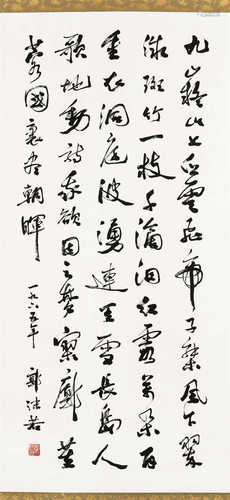 九嶷山上白雲飛帝子乘風下翠
微斑竹一枝千滴泪紅霞萬朵百
重衣洞庭波湧連天雪長島人
歌地動詩我欲因之夢寥廓芙
蓉國裏盡朝暉
一九六五年 郭沫若